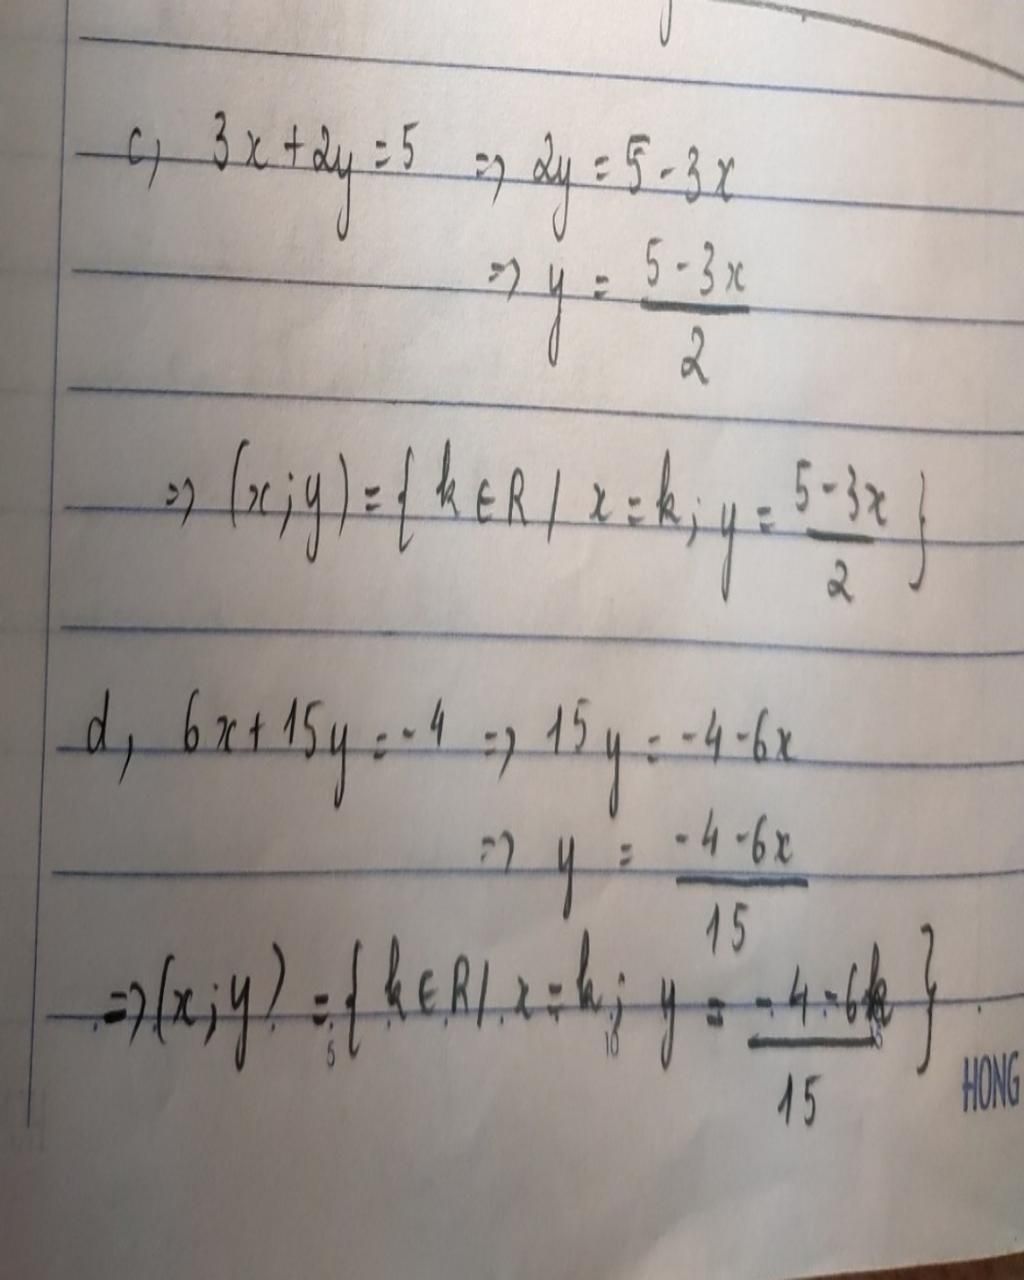 c, 3x + 2y = 5 => 2y = 5 - 3x
=> y = (5 - 3x)/2
=> (x; y) = { k ∈ R / x = k; y = (5 - 3x)/2 }
d, 6x + 15y = -4 => 15y = -4 - 6x
=> y = (-4 - 6x)/15
=> (x; y) = { k ∈ R / x = k; y = (-4 - 6k)/15 }
5 10 15
HONG